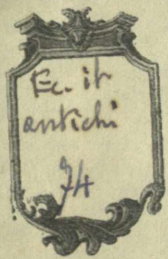 Ec. it
antichi
74